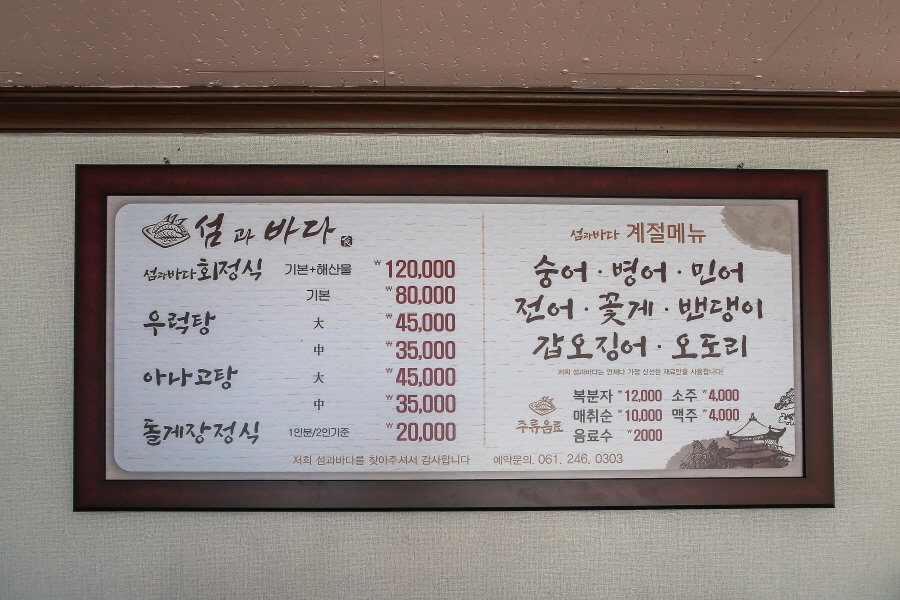 섬과 바다
섬과바다 회정식 기본+해산물 ₩120,000
기본 ₩80,000
우럭탕 大 ₩45,000
中 ₩35,000
아나고탕 大 ₩45,000
中 ₩35,000
돌게장정식 1인분/2인기준 ₩20,000
저희 섬과바다를 찾아주셔서 감사합니다
섬과바다 계절메뉴
숭어 · 병어 · 민어
전어 · 꽃게 · 밴댕이
갑오징어 · 오도리
저희 섬과바다는 언제나 가장 신선한 재료만을 사용합니다!
주류음료
복분자 ₩12,000 소주 ₩4,000
매취순 ₩10,000 맥주 ₩4,000
음료수 ₩2000
예약문의. 061. 246. 0303